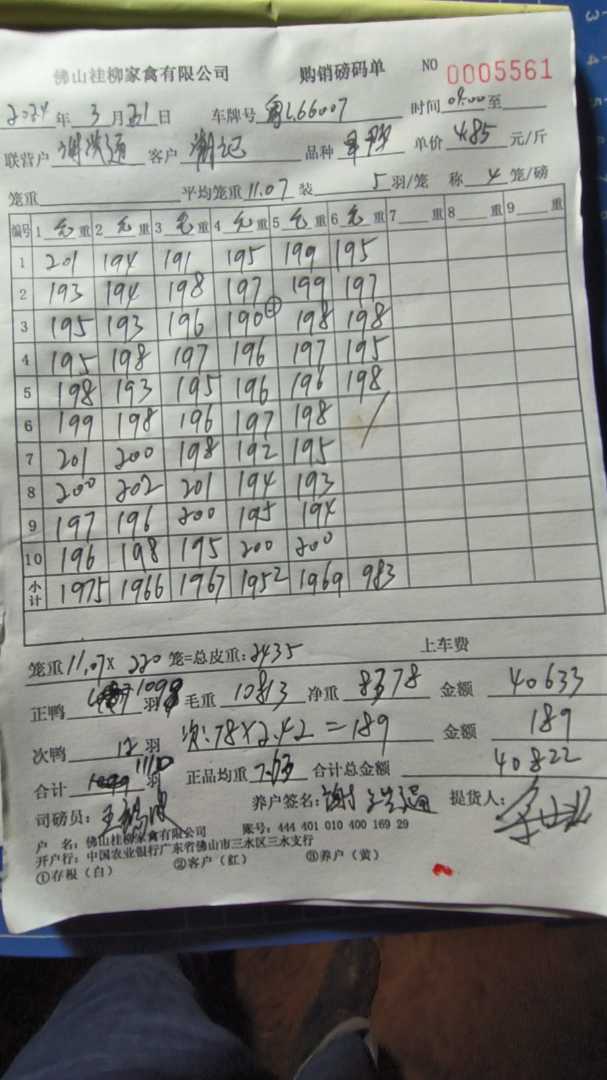 佛山桂柳家禽有限公司 购销磅码单 NO 0005561
2024年3月21日 车牌号 粤L66007 时间 09:00至
联营户 谢洪通 客户 潮记 品种 单价 4.85 元/斤
笼重 平均笼重 11.07 装 5 羽/笼 称 4 笼/磅
编号 1 毛重 2 毛重 3 毛重 4 毛重 5 毛重 6 毛重 7 重 8 重 9 重
1 201 194 191 195 199 195
2 193 194 198 197 199 197
3 195 193 196 190 198 198
4 195 198 197 196 197 195
5 198 193 195 196 196 198
6 199 198 196 197 198 /
7 201 200 198 192 195
8 200 202 201 194 193
9 197 196 200 195 194
10 196 198 195 200 200
小计 1975 1966 1967 1952 1969 983
笼重 11.07 × 220 笼=总皮重: 2435 上车费
正鸭 1098 羽 毛重 10813 净重 8378 金额 40633
次鸭 12 羽 次:78×2.42=189 金额 189
合计 1110 羽 正品均重 7.63 合计总金额 40822
司磅员: 养户签名: 谢洪通 提货人:
户 名: 佛山桂柳家禽有限公司 账号: 444 401 010 400 169 29
开户行: 中国农业银行广东省佛山市三水区三水支行
①存根(白) ②客户(红) ③养户(黄)